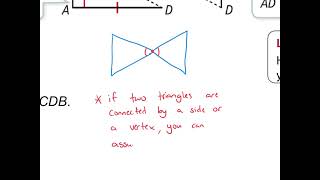 A
D
D
AD
L
H
y
CDB.
* if two triangles are
connected by a side or
a vertex, you can
assu